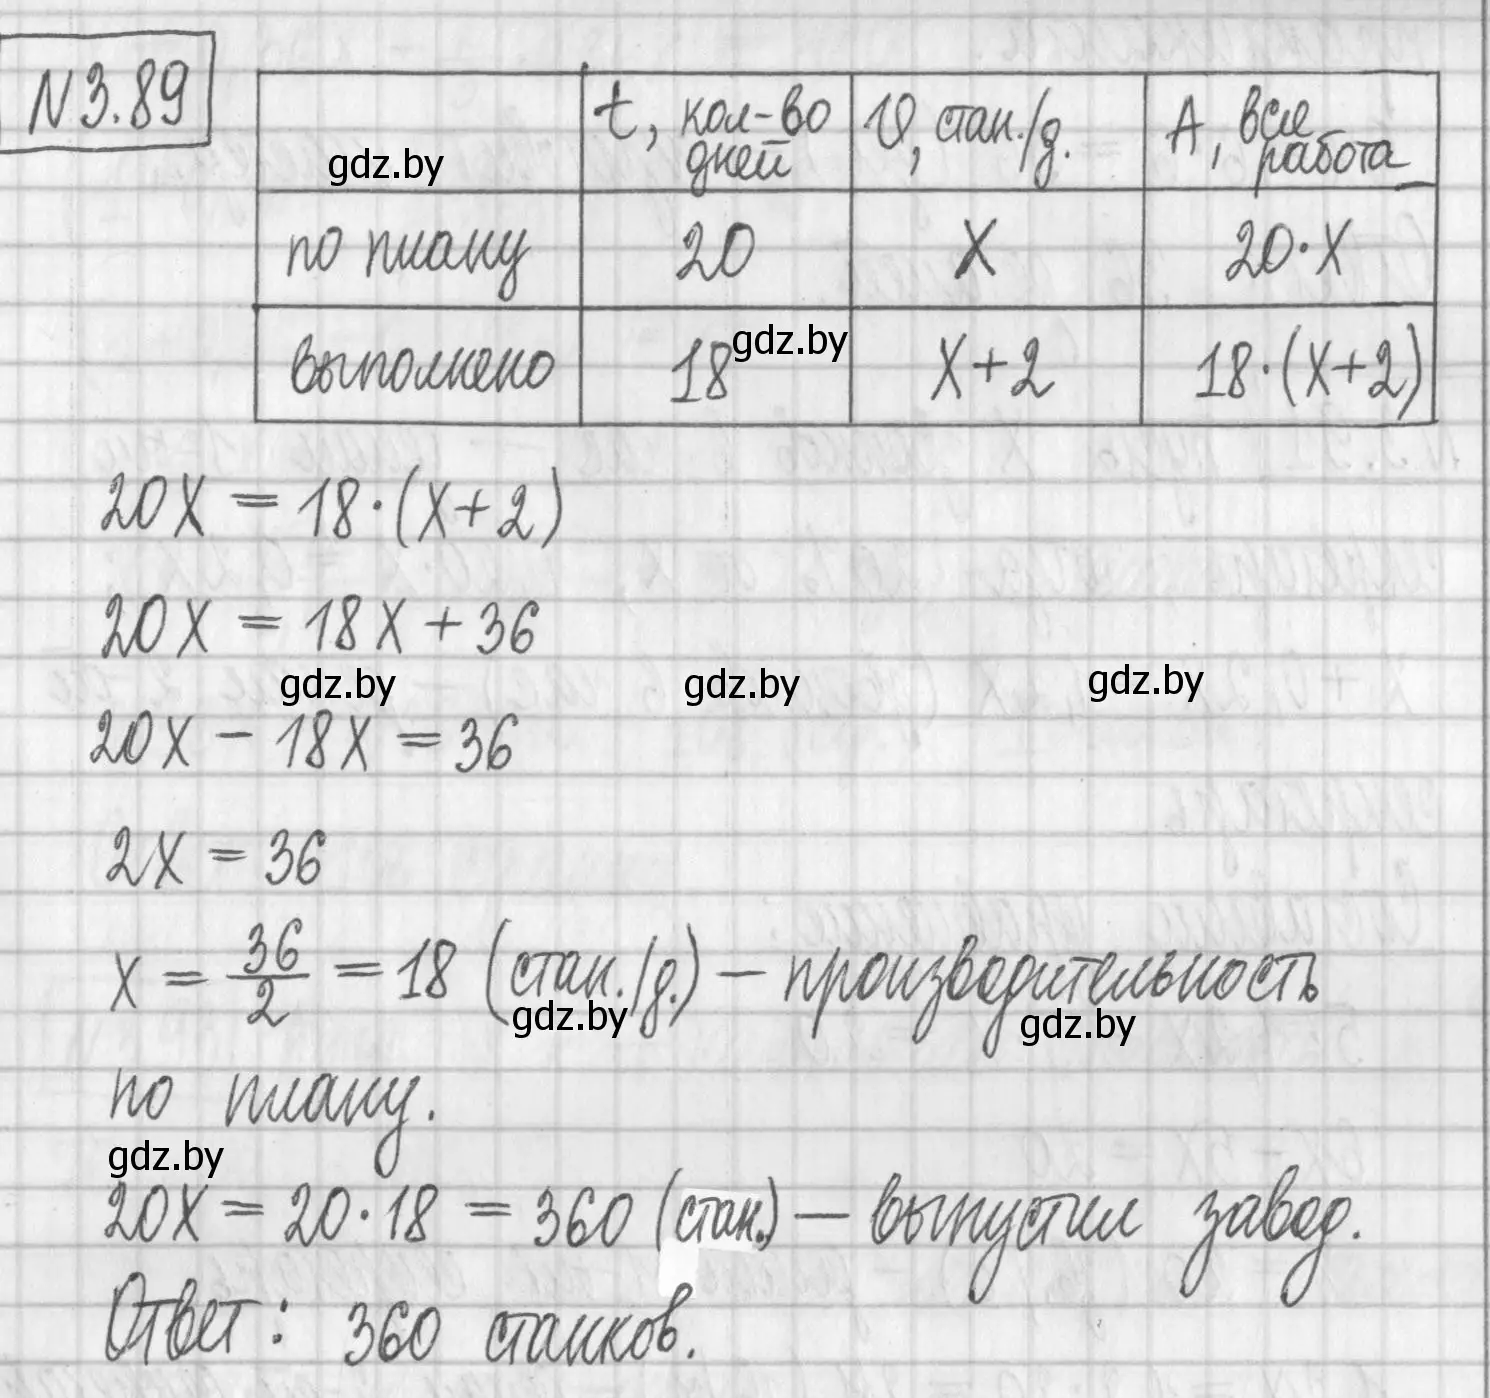 N3.89
t, кол-во дней | V, стан./д. | A, вся работа
gdz.by
по плану | 20 | X | 20·X
выполнено | 18 | X+2 | 18·(X+2)
gdz.by
20X = 18·(X+2)
20X = 18X + 36
gdz.by gdz.by gdz.by
20X - 18X = 36
2X = 36
X = 36/2 = 18 (стан./д.) – производительность
gdz.by gdz.by
по плану.
gdz.by
20X = 20·18 = 360 (стан.) – выпустил завод.
Ответ: 360 станков.